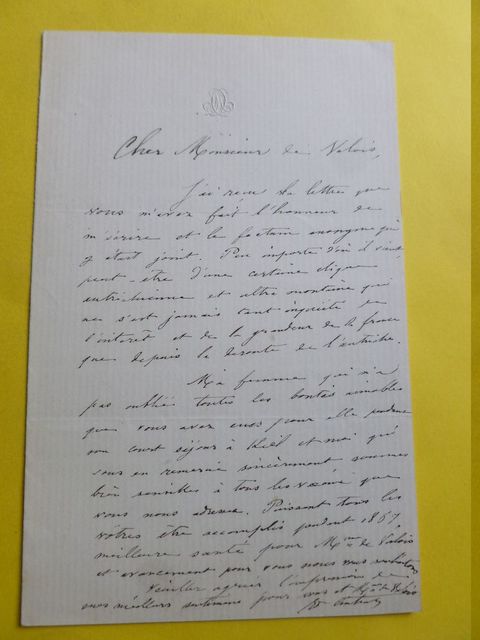 Cher Monsieur de Valois,
J'ai reçu la lettre que
vous m'avez fait l'honneur de
m'écrire et le factum anonyme qui
y était joint. Peu importe d'où il vient,
peut-être d'une certaine clique
autrichienne et ultra montaine qui
ne s'est jamais tant inquiété de
l'intérêt et de la grandeur de la france
que depuis la déroute de l'autriche.
Ma femme qui n'a
pas oublié toutes les bontés aimables
que vous avez eues pour elle pendant
son court séjour à Kiel et moi qui
vous en remercie sincèrement sommes
bien sensibles à tous les vœux que
vous nous adressez. Puissent tous les
vôtres être accomplis pendant 1867,
meilleure santé pour Mme de Valois
et avancement pour vous nous vous souhaitons
Veuillez agréer l'expression de
mes meilleurs sentiments pour vous et Mme de Valois